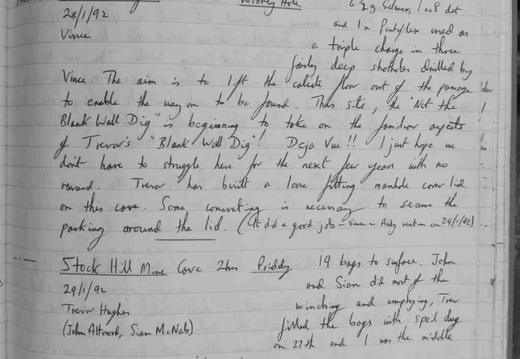 28/1/92
Vince
Gelamex, 1 no8 det
and 1m Pentaflex used as
a triple charge in three
fairly deep shotholes drilled by
Vince. The aim is to lift the calcite floor out of the passage
to enable the way on to be found. This site, the 'Not the
Blank Wall Dig' is beginning to take on the familiar aspects
of Trevor's "Blank Wall Dig"! Deja Vue!! I just hope we
don't have to struggle here for the next few years with no
reward. Trevor has built a loose fitting manhole cover lid
on this cave. Some concreting is necessary to secure the
packing around the lid. (At did a good job - Vince - Andy went on 29/1/92)
Stock Hill Mine Cave 2hrs Priddy
29/1/92
Trevor Hughes
(John Attwood, Sian McNab)
19 bags to surface. John
and Sian did most of the
winching and emptying, Trev
filled the bags with spoil dug
on 27th and I was the middle